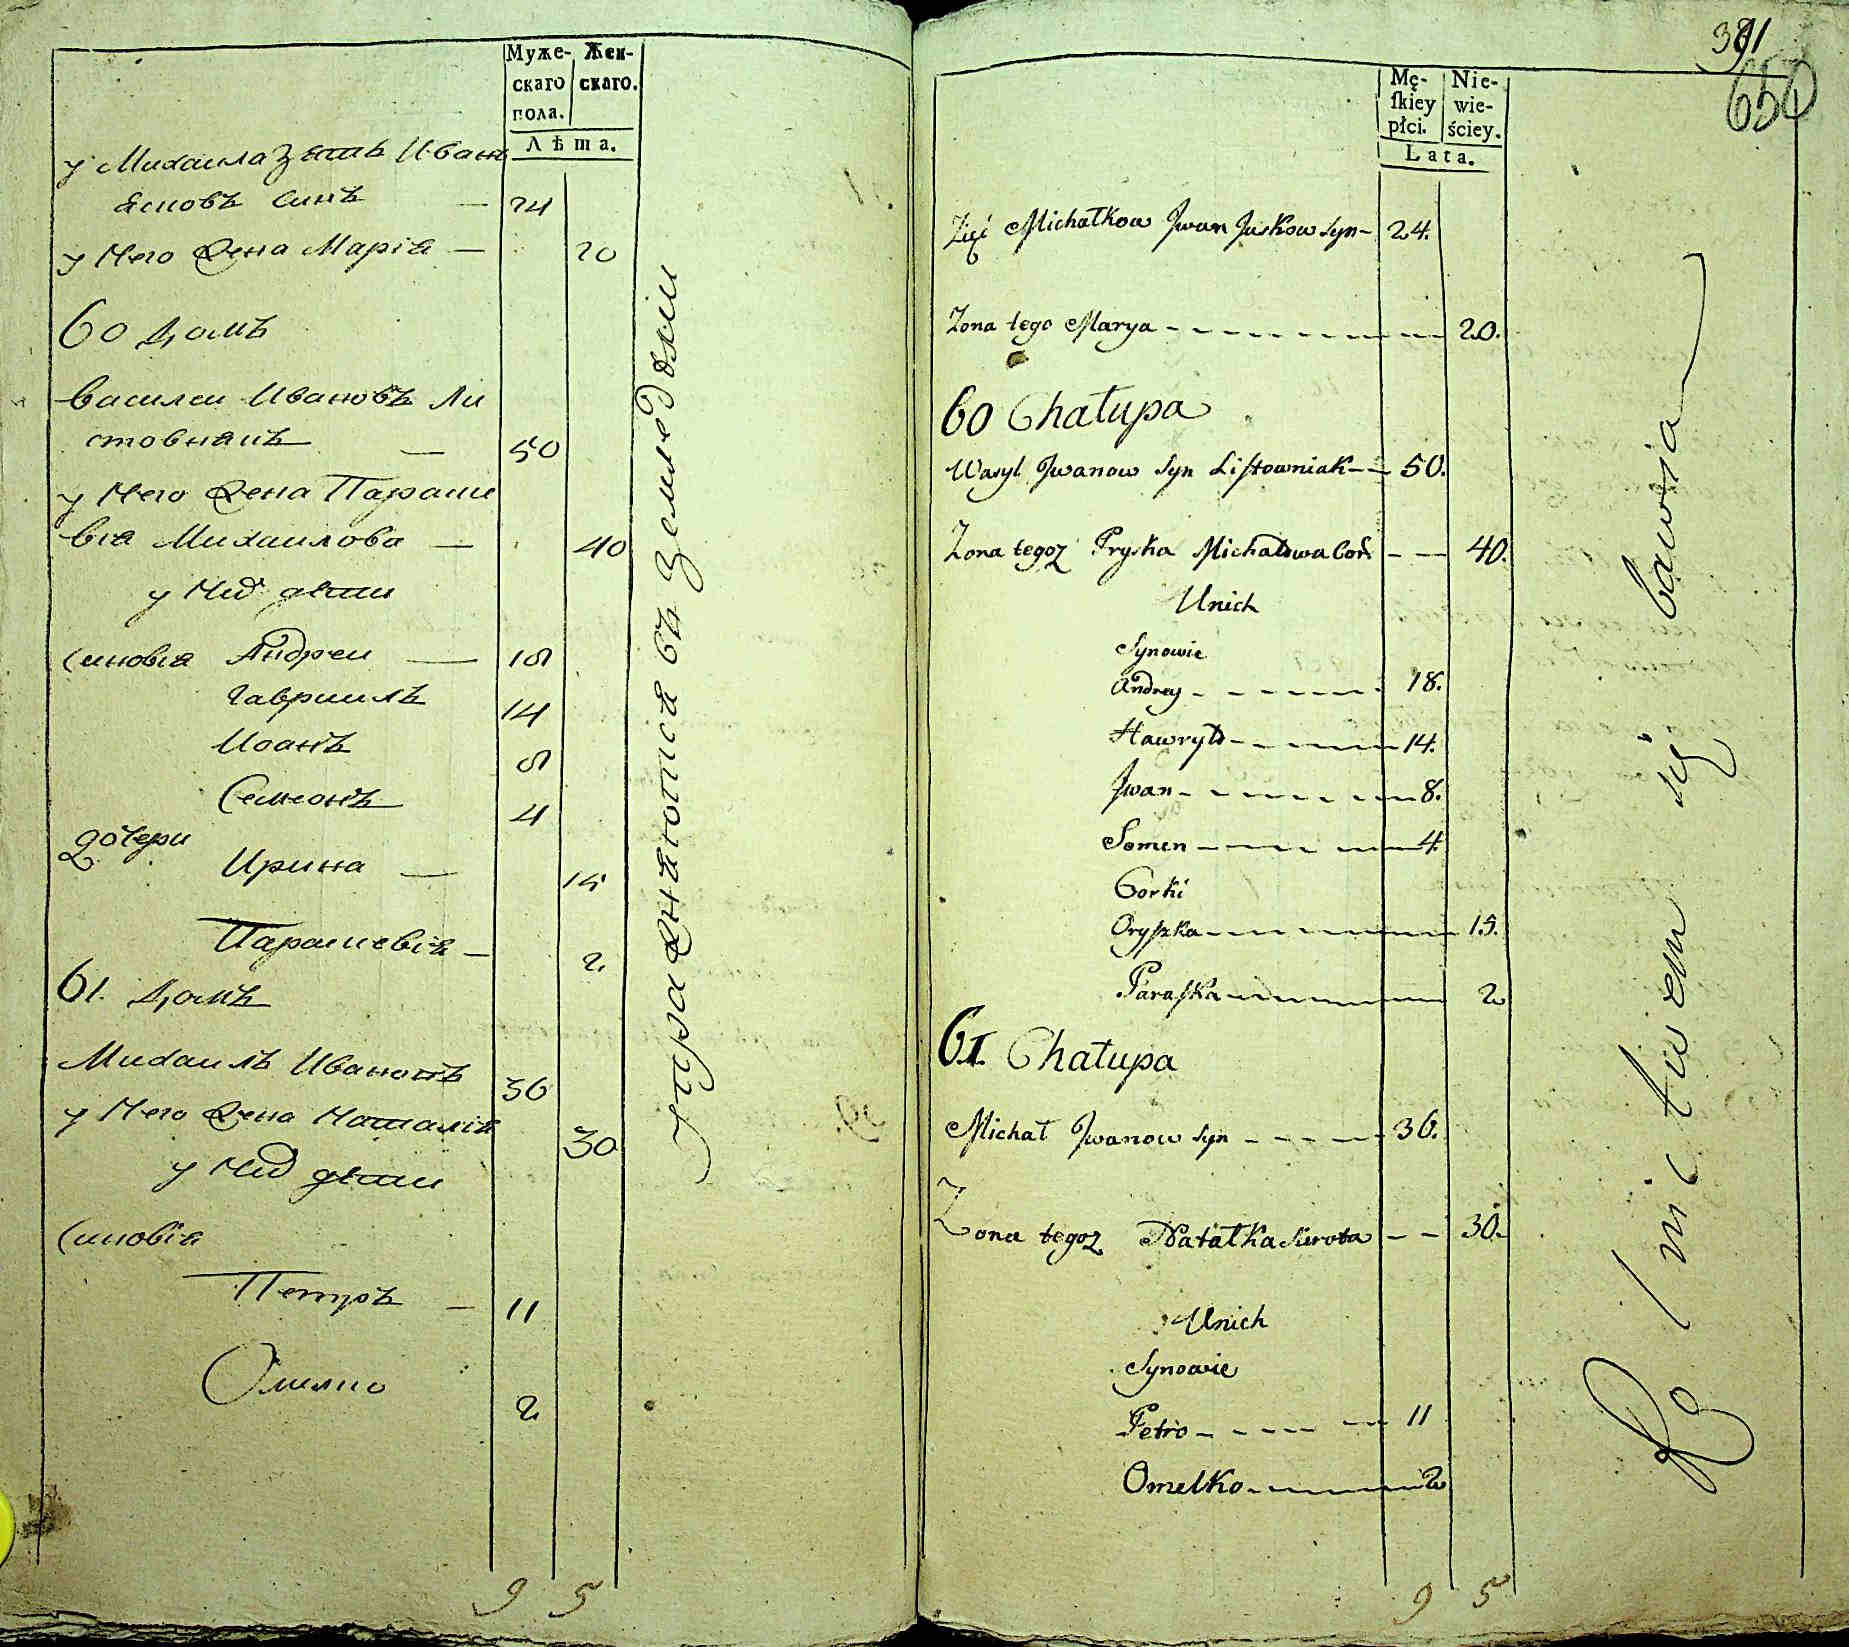 Муже-
скаго
пола.
Жен-
скаго.
Лѣта.
у Михаила Зять Иванъ
Яковъ синъ — 24
у Него Жена Марія — 20
60 Домъ
Василеи Ивановъ Ли
стовнякъ — 50
у Него Жена Параске
вія Михаилова — 40
у Них дѣти
Синовія Андреи — 18
Гавриилъ 14
Иоанъ 8
Семионъ 4
дочери
Ирина — 15
Параскевія — 2
61. Домъ
Михаилъ Ивановъ 36
у Него Жена Наталія 30
у Них дѣти
Синовія
Петръ — 11
Омелко 2
упражняются въ земледѣліи
9 5
391
650
Mę-
skiey
płci.
Nie-
wie-
ściey.
Lata.
Zięć Michałkow Jwan Juskow syn - 24.
Zona tego Marya - 20.
60 Chałupa
Wasyl Jwanow syn Listowniak - 50.
Zona tegoz Pryska Michałowa Cor. - 40.
Unich
Synowie
Andrey - 18.
Hawryło - 14.
Jwan - 8.
Semen - 4.
Corki
Oryszka - 15.
Paraska - 2
61. Chałupa
Michał Jwanow syn - 36.
Zona tegoz Natałka sierota - 30.
Unich
Synowie
Petro - 11
Omelko - 2
Rolnictwem się bawią
9 5